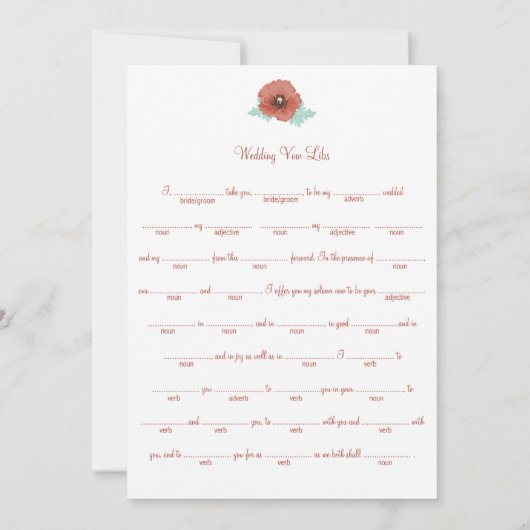 Wedding Vow Libs
I, .................. take you, .................. to be my .................. wedded
bride/groom bride/groom adverb
.................. my .................. .................. my .................. ..................
noun adjective noun adjective noun
and my .................. from this .................. forward. In the presence of ..................,
noun noun noun
our .................. and .................., I offer you my solemn vow to be your ..................
noun noun adjective
.................. in .................. and in .................. in good .................. and in
noun noun noun noun
.................., and in joy as well as in .................. I .................., to
noun noun verb
.................. you .................., to .................. you in your .................., to
verb adverb verb noun
.................. and .................. you, to .................. with you and .................. with
verb verb verb verb
you, and to .................. you for as .................. as we both shall .................. .
verb verb noun